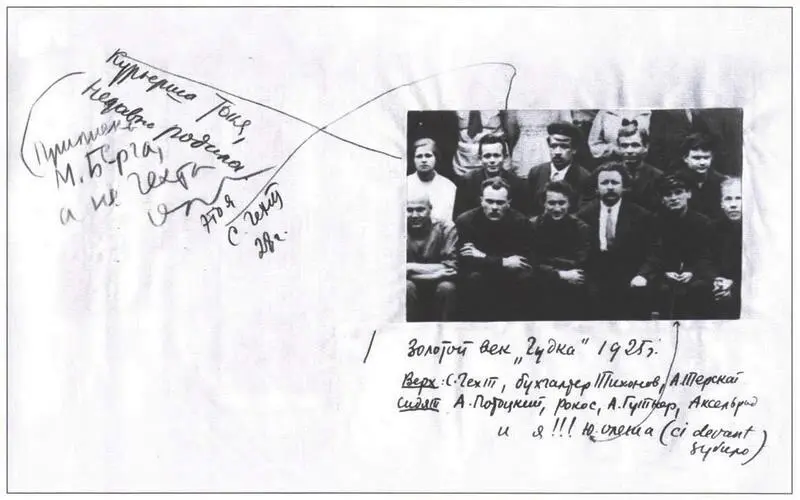 Курьерша Тоня,
недавно родила
(Приписка
М. Берга,
а не Гехта
это я
С. Гехт
28 г.
Золотой век „Гудка“ 1925 г.
Верх: С. Гехт, бухгалтер Тихонов, А. Терской
сидят А. Потоцкий, Рокос, А. Гутнер, Аксельрод
и я!!! Ю. Олеша (ci devant
зубило)